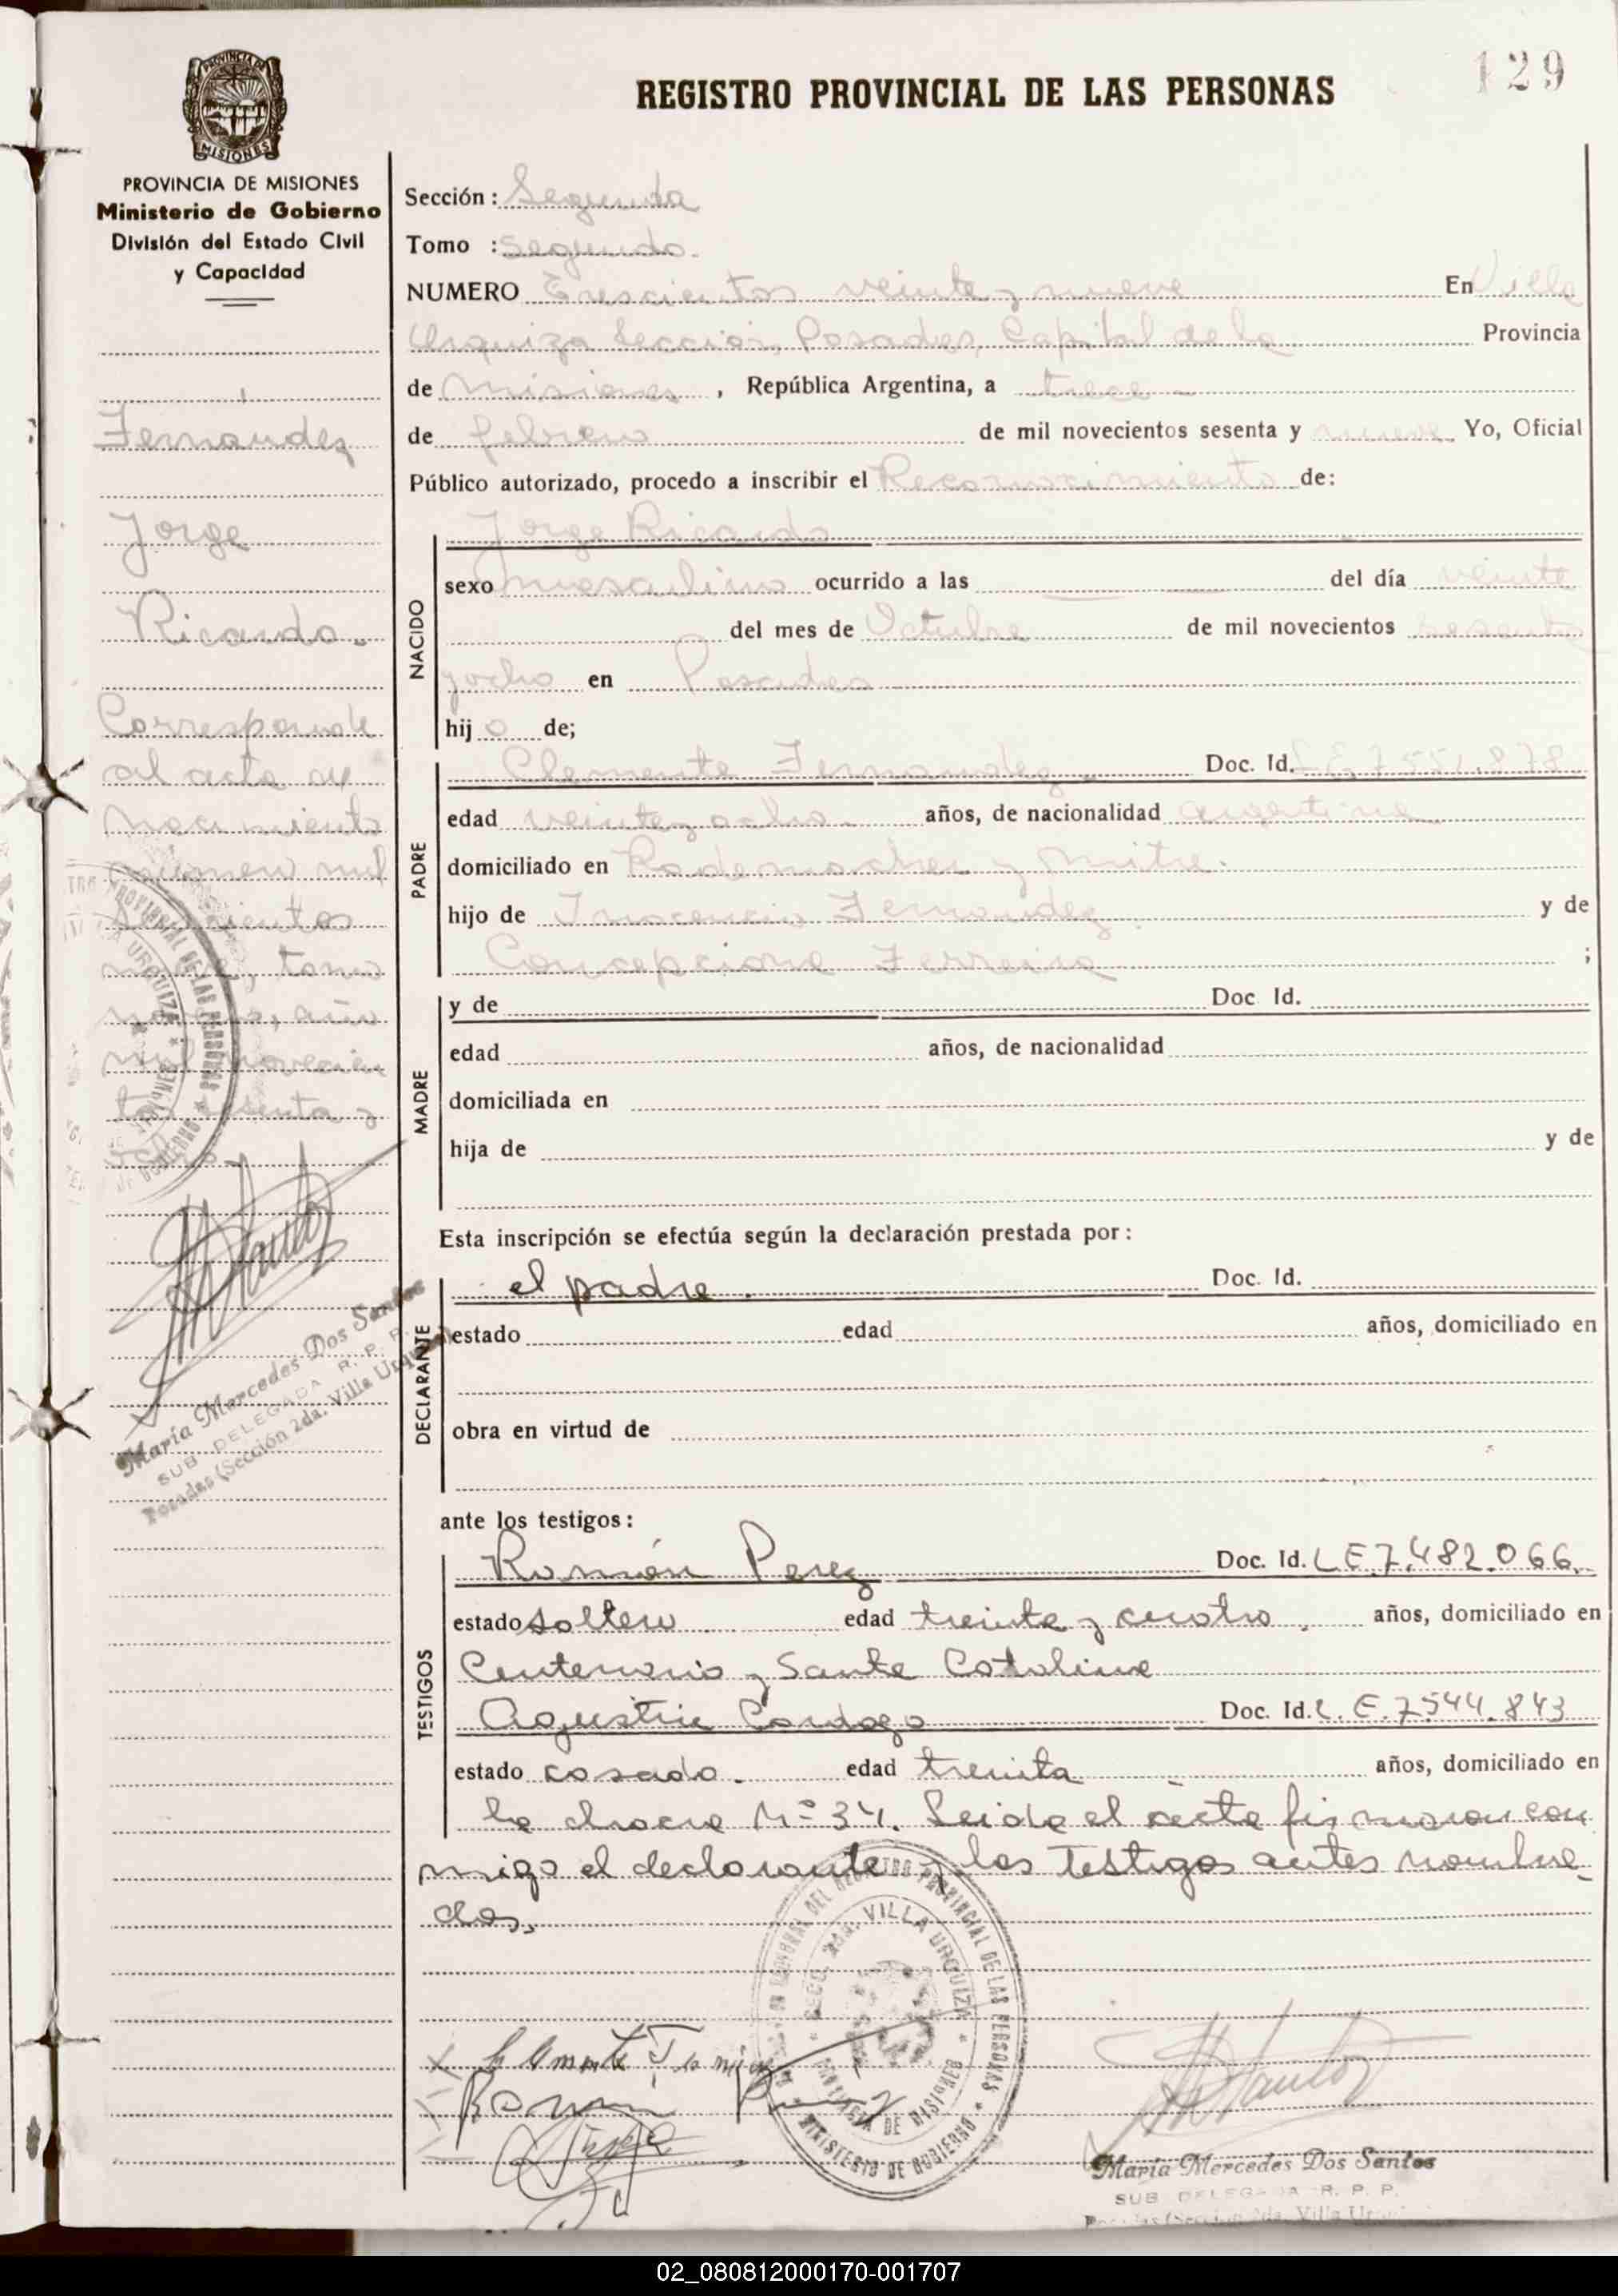 129
REGISTRO PROVINCIAL DE LAS PERSONAS
PROVINCIA DE
MISIONES
PROVINCIA DE MISIONES
Ministerio de Gobierno
División del Estado Civil
y Capacidad
Fernández
Jorge
Ricardo.
Corresponde
al acta de
nacimiento
número mil
tomo
año
mil novecien
tos sesenta y
María Mercedes Dos Santos
SUB DELEGADA R. P. P.
Posadas (Sección 2da. Villa Urqu
Sección: Segunda
Tomo : Segundo.
NUMERO Trescientos veinte y nueve En Villa
Urquiza Sección, Posadas, Capital de la Provincia
de Misiones, República Argentina, a trece
de febrero de mil novecientos sesenta y nueve Yo, Oficial
Público autorizado, procedo a inscribir el Reconocimiento de:
NACIDO
Jorge Ricardo
sexo masculino ocurrido a las del día veinte
del mes de Octubre de mil novecientos sesenta
y ocho en Posadas
hij o de;
PADRE
Clemente Fernandez Doc. Id. L.E.7.551.878
edad veinte y ocho. años, de nacionalidad argentina
domiciliado en Rademacher y Mitre.
hijo de Inocencio Fernandez y de
Concepciona Ferreira ;
MADRE
y de Doc Id.
edad años, de nacionalidad
domiciliada en
hija de y de
Esta inscripción se efectúa según la declaración prestada por:
DECLARANTE
el padre. Doc. Id.
estado edad años, domiciliado en
obra en virtud de
ante los testigos:
TESTIGOS
Román Perez Doc. Id. L E.7.482.066.
estado soltero edad treinta y cuatro, años, domiciliado en
Centenario y Santa Catalina
Agustin Cardozo Doc. Id. L. E. 7.544.843
estado casado. edad treinta años, domiciliado en
la chacra Nº 34. Leida el acta firmaron con
migo el declarante y los Testigos antes nombra
dos,
SECC. 2da. VILLA URQUIZA
REGISTRO PROVINCIAL DE LAS PERSONAS
PROVINCIA DE MISIONES
MINISTERIO DE GOBIERNO
María Mercedes Dos Santos
SUB DELEGADA R. P. P.
02_080812000170-001707